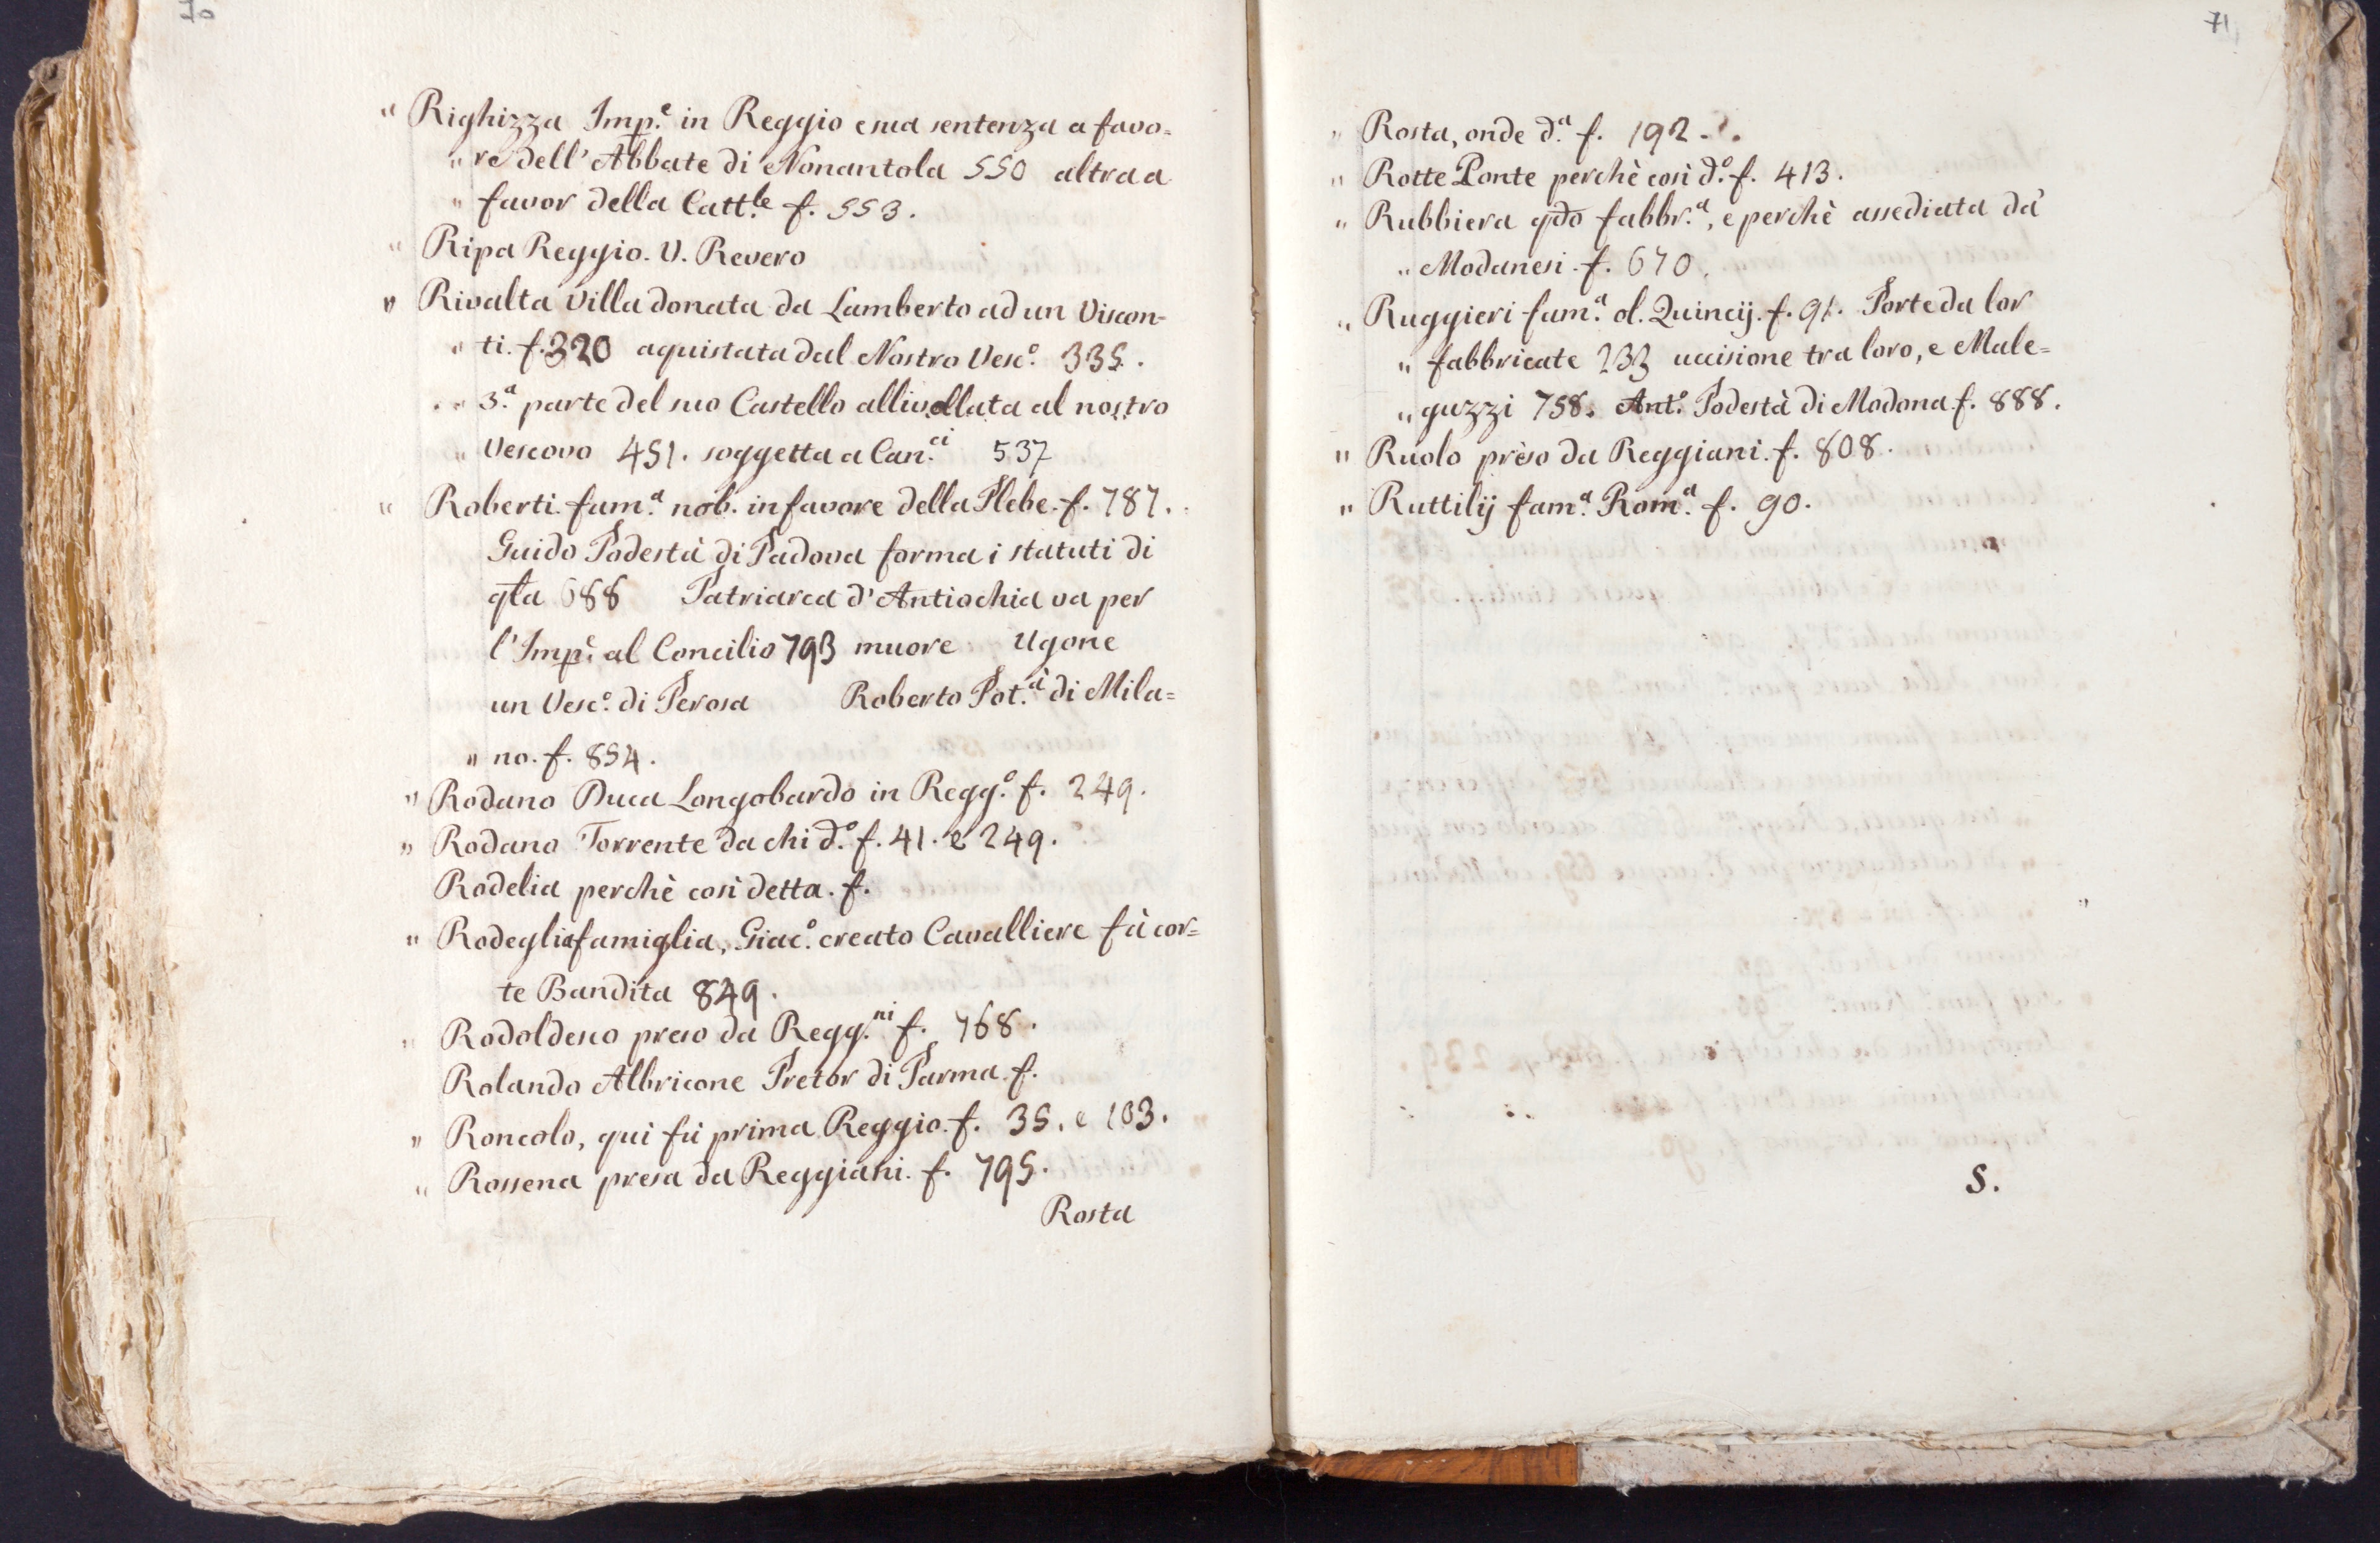 70
" Righizza Imp.e in Reggio e sua sentenza a favo=
" re dell' Abbate di Nonantola 550 altra a
" favor della Catt.le f. 553.
" Ripa Reggio. V. Revero
" Rivalta Villa donata da Lamberto ad un Viscon-
" ti. f. 320 aquistata dal Nostro Vesc.o 335.
" 3.a parte del suo Castello allivellata al nostro
" Vescovo 451. soggetta a Can.ci 537
" Roberti fam.a nob. in favore della Plebe. f. 787.
Guido Podestà di Padova forma i statuti di
qta 688 Patriarca d'Antiochia va per
l'Imp.e al Concilio 793 muore Ugone
un Vesc.o di Perosa Roberto Pot.à di Mila=
" no. f. 854.
" Rodano Duca Longobardo in Regg.o f. 249.
" Rodano Torrente da chi d.o f. 41. e 249.
Rodelia perchè così detta. f.
" Rodeglia famiglia, Giac.o creato Cavalliere fà cor=
te Bandita 849.
" Rodoldesco preso da Regg.ni f. 768.
Rolando Albricone Pretor di Parma. f.
" Roncolo, qui fù prima Reggio. f. 35. e 103.
" Rossena presa da Reggiani. f. 795.
Rosta
71
" Rosta, onde d.a f. 192.
" Rotte Ponte perchè così d.o f. 413.
" Rubbiera qdo fabbr.a, e perchè assediata da'
" Modanesi. f. 670.
" Ruggieri fam.a ol. Quincij. f. 91. Porte da lor
" fabbricate 233 uccisione tra loro, e Male=
" guzzi 758. Ant.o Podestà di Modona f. 888.
" Ruolo prèso da Reggiani. f. 808.
" Ruttilij fam.a Rom.a f. 90.
S.